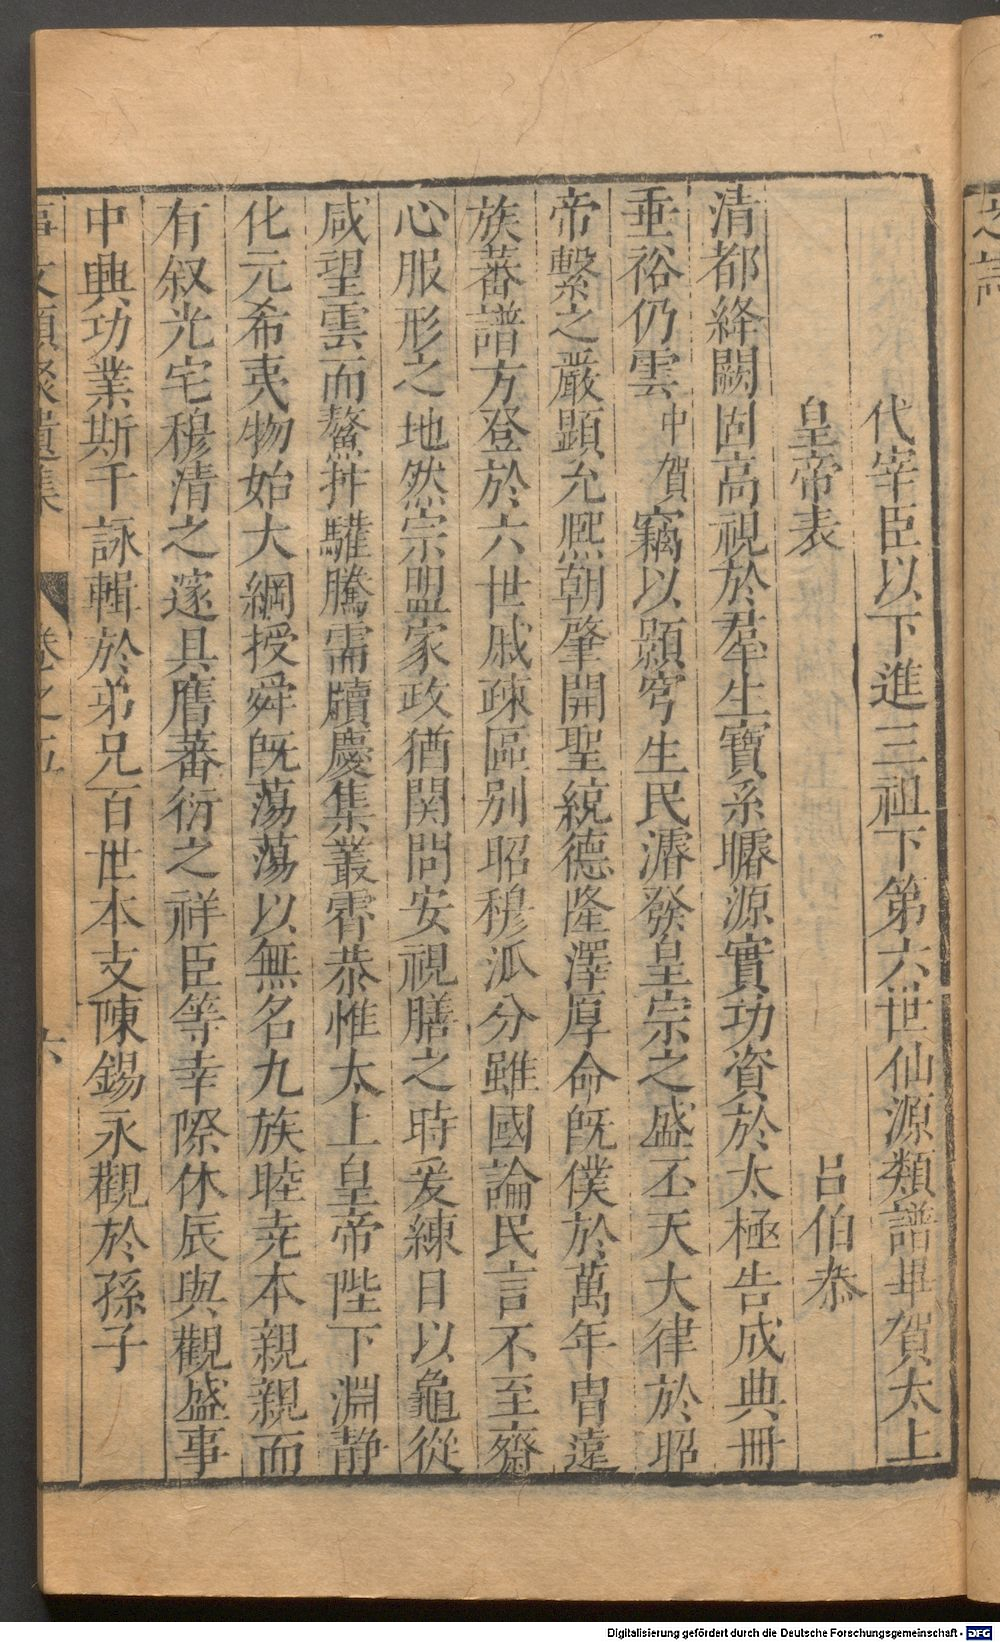 代宰臣以下進三祖下第六世仙源類譜畢賀太上
皇帝表 呂伯恭
清都絳闕固高視於羣生寶系曒源實功資於太極告成典冊
垂裕仍雲中賀竊以顥穹生民濬發皇宗之盛丕天大律於昭
帝繫之嚴顯允熈朝肇開聖統德隆澤厚命旣僕於萬年胄遠
族蕃譜方登於六世戚疎區别昭穆派分雖國論民言不至齋
心服形之地然宗盟家政猶関問安視膳之時爰練日以龜從
咸望雲而鰲抃驩騰需牘慶集叢霄恭惟太上皇帝陛下淵静
化元希夷物始大綱授舜旣蕩蕩以無名九族睦尭本親親而
有叙光宅穆清之邃具膺蕃衍之祥臣等幸際休辰與觀盛事
中興功業斯干詠輯於弟兄百世本支陳錫永觀於孫子
事文類聚遺集 卷之五 六
Digitalisierung gefördert durch die Deutsche Forschungsgemeinschaft - DFG